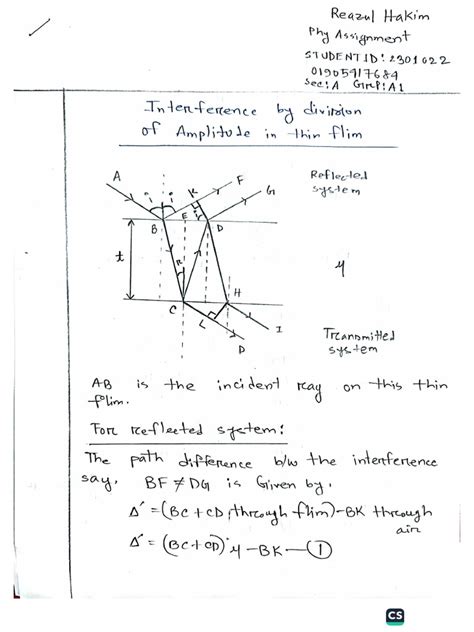 Reazul Hakim
Phy Assignment
STUDENT ID: 2301022
01905417684
Sec: A Grp: A1
Interference by division
of Amplitude in thin flim
A
i
i
K
F
G
Reflected
system
B
E
i
D
t
R
μ
C
H
L
D
I
Transmitted
system
AB is the incident ray on this thin
flim.
For reflected system:
The path difference b/w the interference
say, BF ≠ DG is Given by,
Δ' = (BC + CD, through flim) - BK through
air
Δ' = (BC + CD) · μ - BK — ①
CS